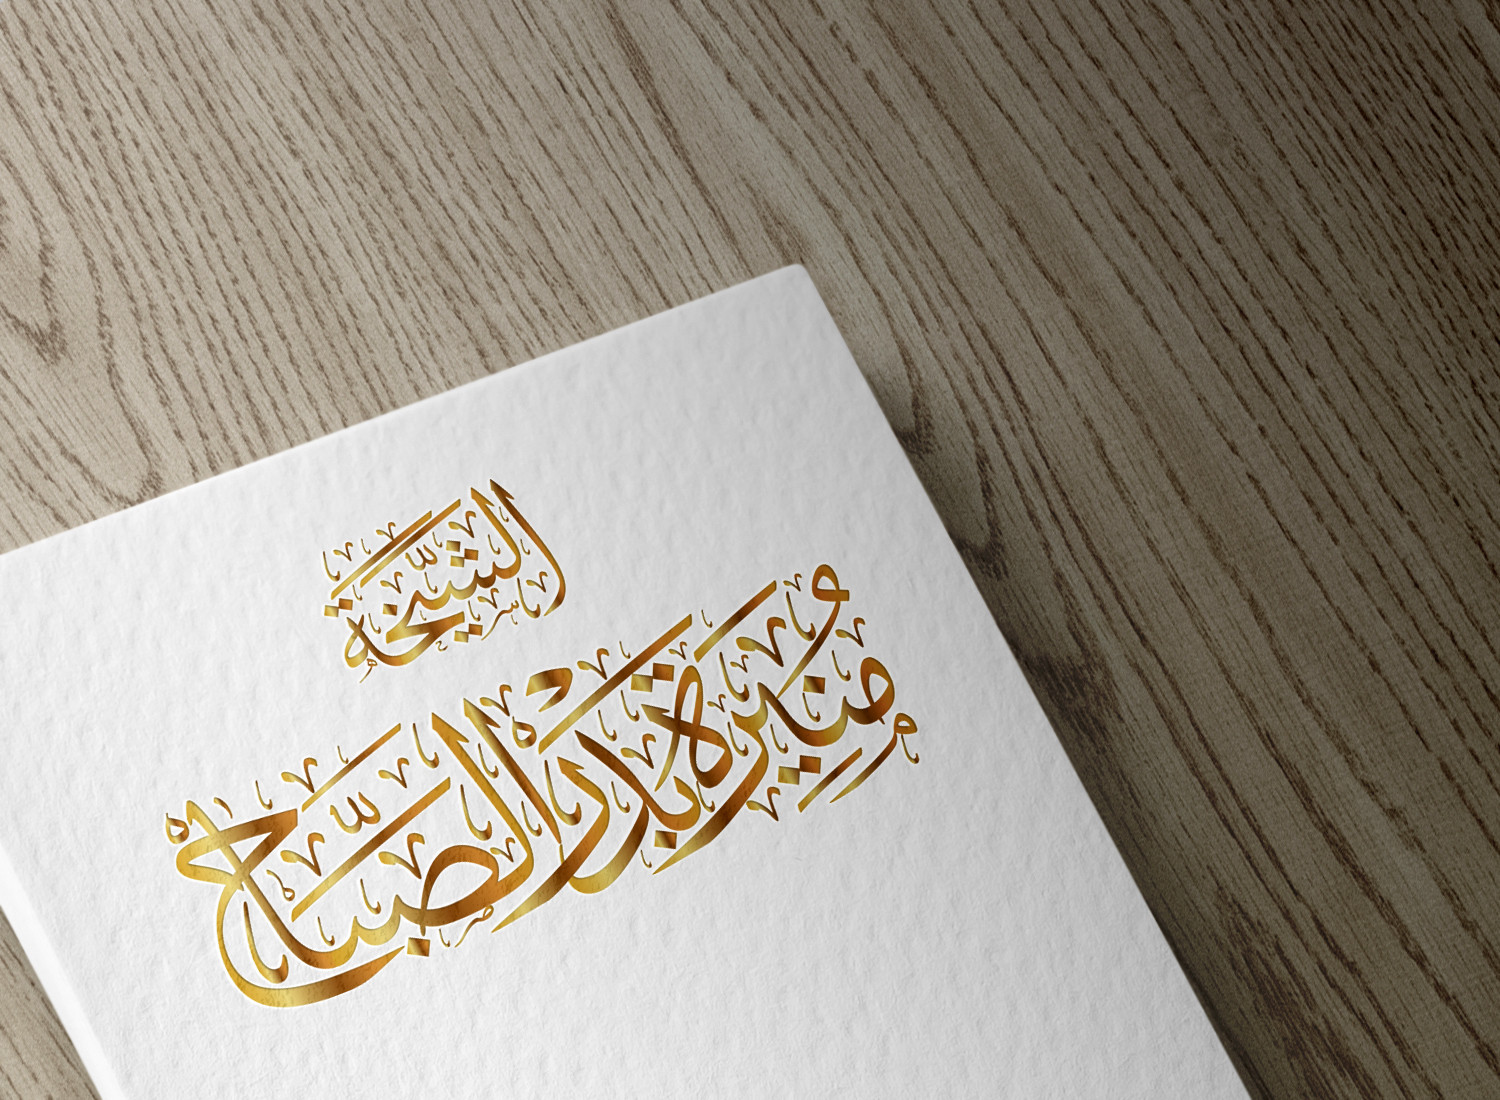 الشَّيْخَة
مُنِيرَة بَدْر الصَّبَّاح